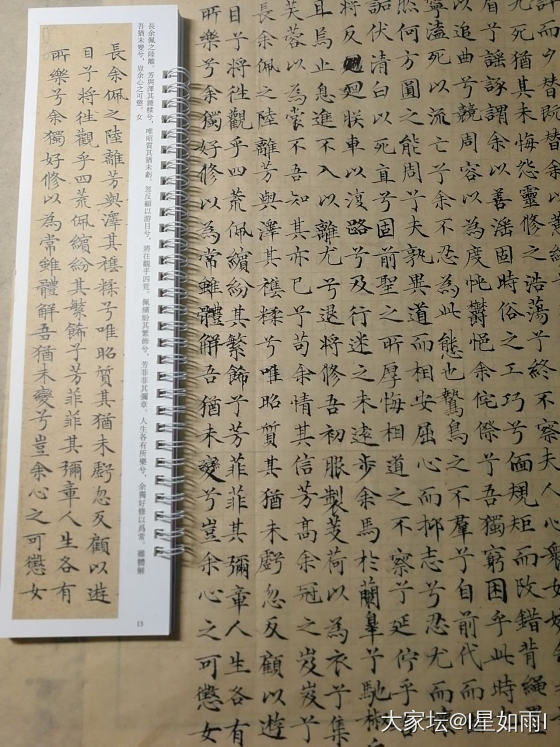 長余佩之陸離。芳與澤其雜糅兮，唯昭質其猶未虧。忽反顧以游目兮，將往觀乎四荒。佩繽紛其繁飾兮，芳菲菲其彌章。人生各有所樂兮，余獨好修以爲常。雖體解
吾猶未變兮，豈余心之可懲。女
長余佩之陸離芳與澤其襍糅兮唯昭質其猶未虧忽反顧以遊
目兮將往觀乎四荒佩繽紛其繁飾兮芳菲菲其彌章人生各有
所樂兮余獨好修以為常雖體解吾猶未變兮豈余心之可懲女
13
而夕替既替余以蕙
死其猶未悔怨靈修之浩蕩兮終不察夫人心衆女
眉兮謠諑謂余以善淫固時俗之工巧兮偭規矩而改錯背繩
以追曲兮競周容以為度忳鬱悒余侘傺兮吾獨窮困乎此時
寧溘死以流亡兮余不忍為此態也鷙鳥之不羣兮自前代而
然何方圓之能周兮夫孰異道而相安屈心而抑志兮忍尤而
詬伏清白以死直兮固前聖之所厚悔相道之不察兮延佇乎
將反迴朕車以復路兮及行迷之未遠步余馬於蘭皋兮馳椒
且焉止息進不入以離尤兮退將修吾初服製芰荷以為衣兮集
芙蓉以為裳不吾知其亦已兮苟余情其信芳高余冠之岌岌兮
長余佩之陸離芳與澤其襍糅兮唯昭質其猶未虧忽反顧以遊
目兮將往觀乎四荒佩繽紛其繁飾兮芳菲菲其彌章人生各有
所樂兮余獨好修以為常雖體解吾猶未變兮豈余心之可懲女
大家坛@I星如雨I